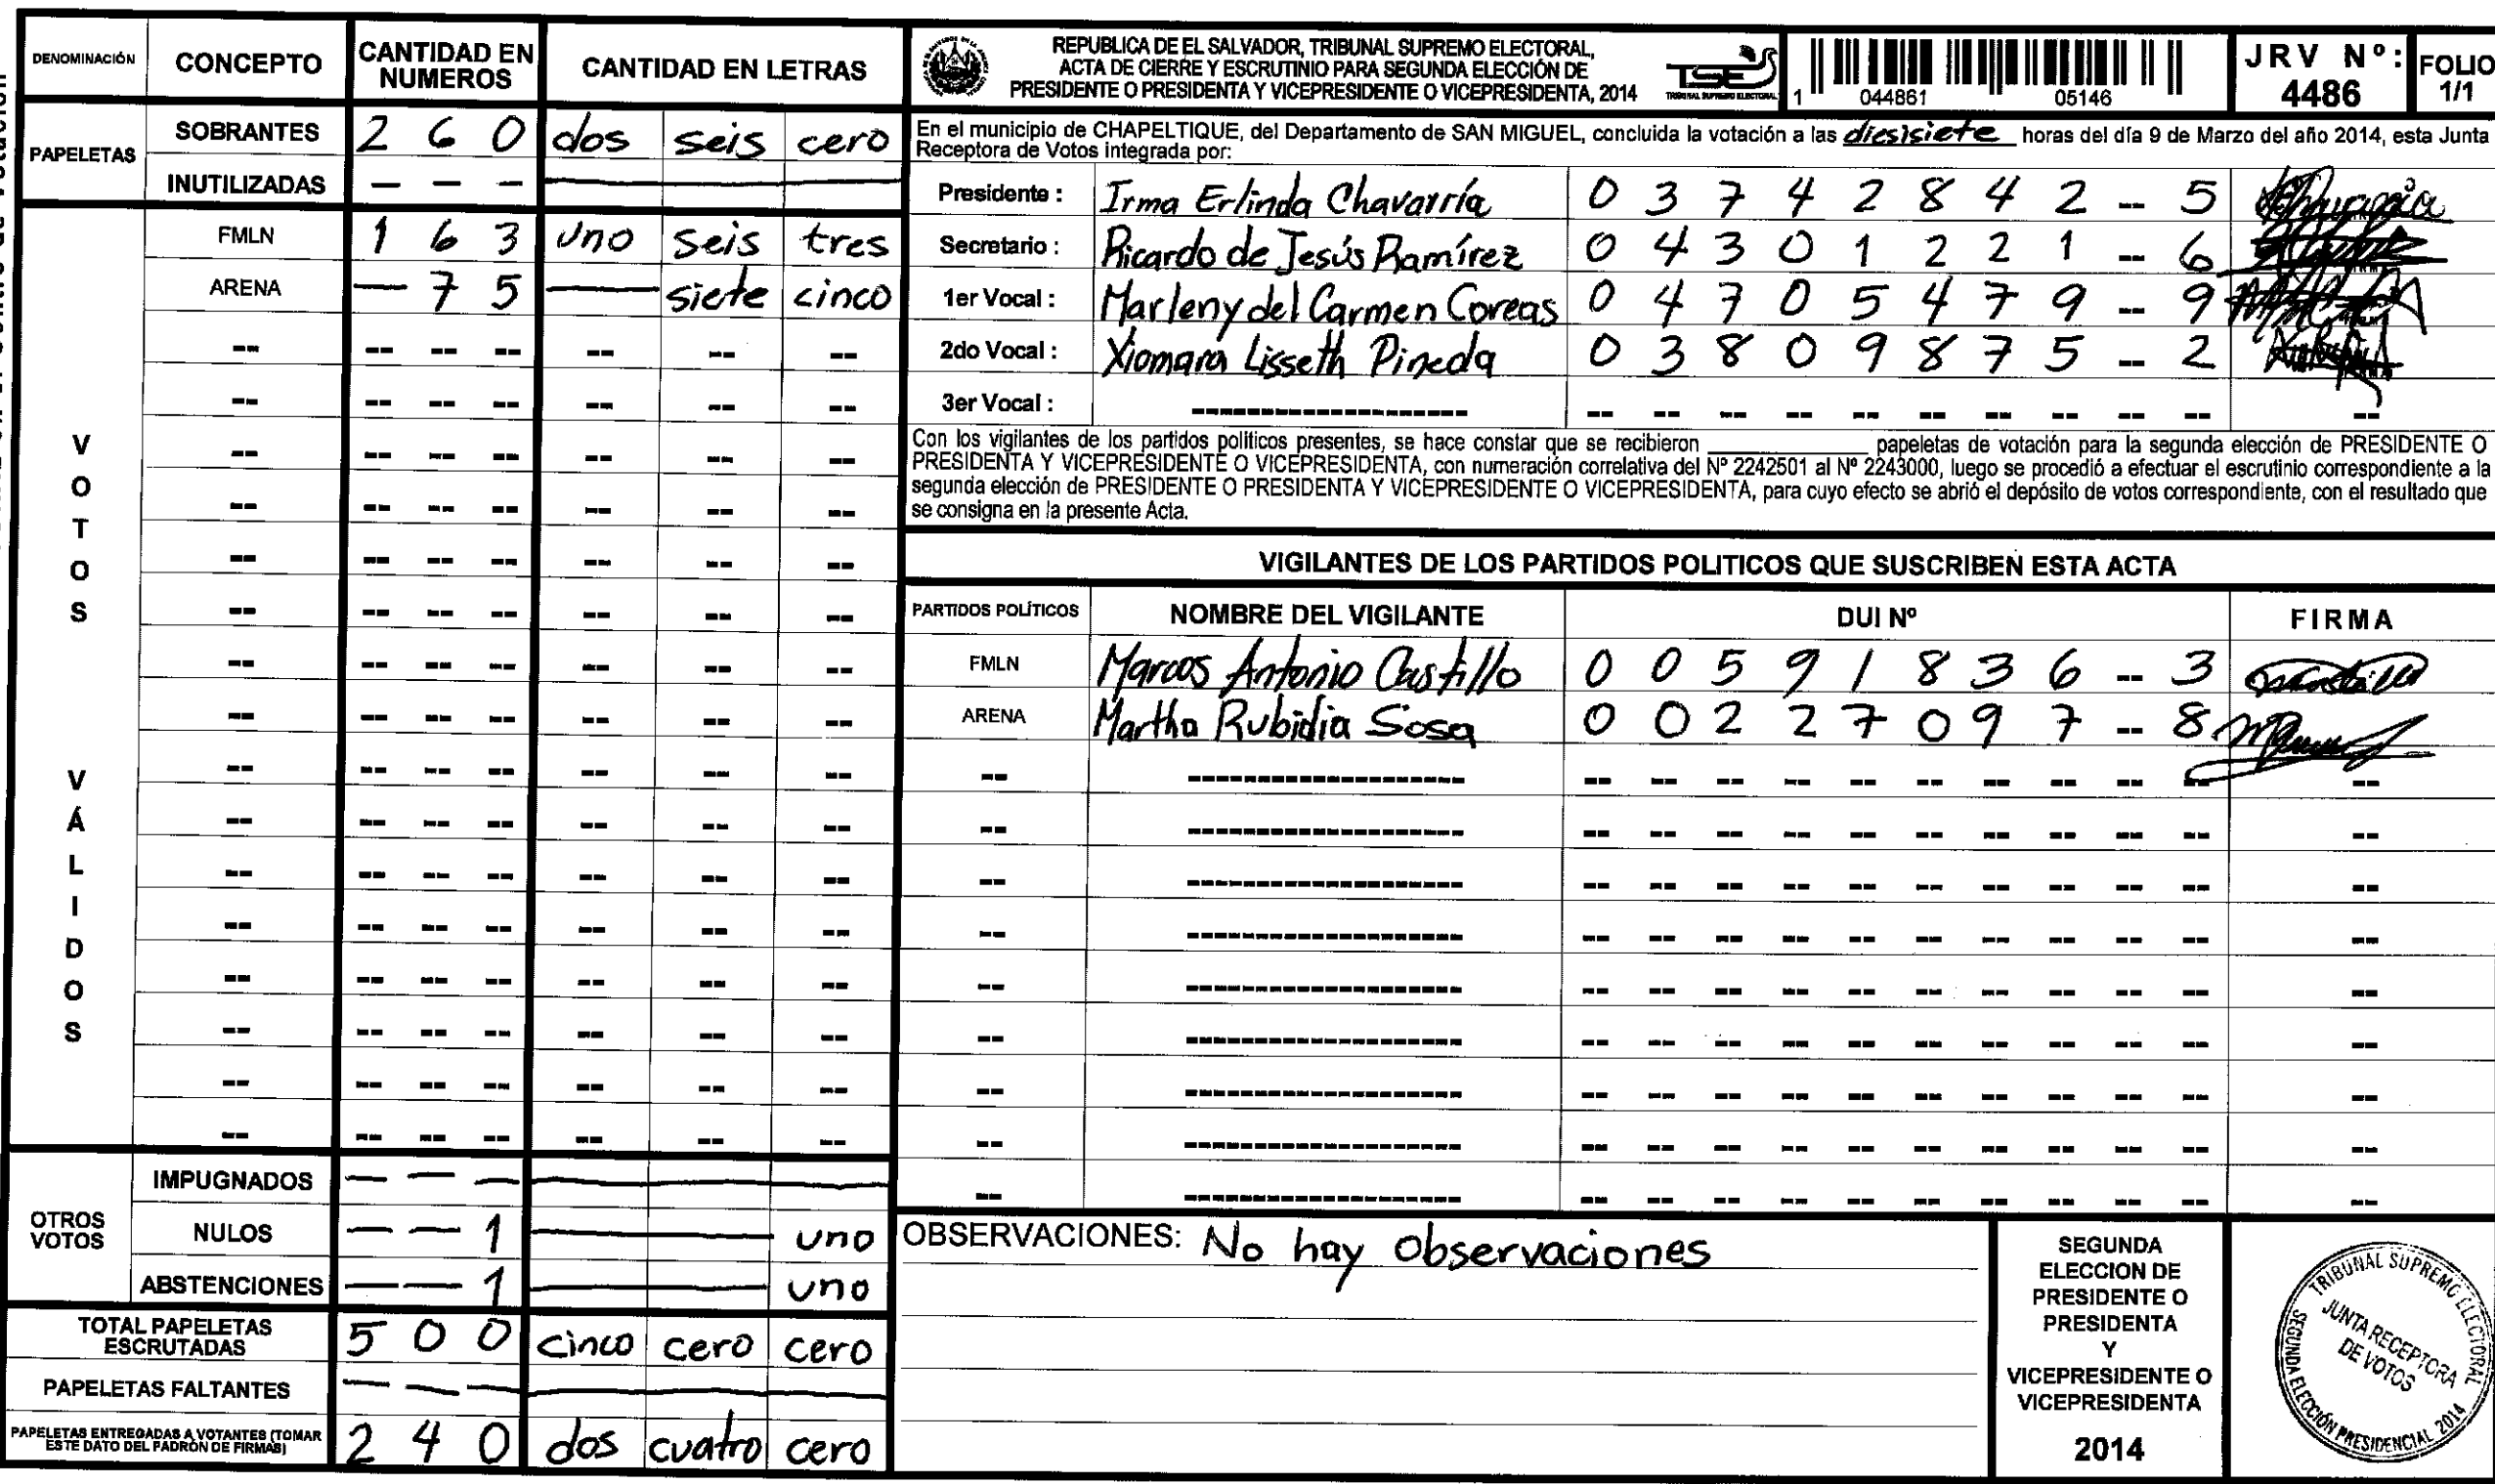 DENOMINACIÓN CONCEPTO CANTIDAD EN NUMEROS CANTIDAD EN LETRAS
PAPELETAS
SOBRANTES 2 6 0 dos seis cero
INUTILIZADAS — — —
VOTOS VÁLIDOS
FMLN 1 6 3 uno seis tres
ARENA — 7 5 — siete cinco
OTROS VOTOS
IMPUGNADOS — — —
NULOS — — 1 uno
ABSTENCIONES — — 1 uno
TOTAL PAPELETAS ESCRUTADAS 5 0 0 cinco cero cero
PAPELETAS FALTANTES — — —
PAPELETAS ENTREGADAS A VOTANTES (TOMAR ESTE DATO DEL PADRÓN DE FIRMAS) 2 4 0 dos cuatro cero
REPUBLICA DE EL SALVADOR, TRIBUNAL SUPREMO ELECTORAL,
ACTA DE CIERRE Y ESCRUTINIO PARA SEGUNDA ELECCIÓN DE
PRESIDENTE O PRESIDENTA Y VICEPRESIDENTE O VICEPRESIDENTA, 2014
TSE
TRIBUNAL SUPREMO ELECTORAL
1 044861 05146
JRV Nº: 4486
FOLIO 1/1
En el municipio de CHAPELTIQUE, del Departamento de SAN MIGUEL, concluida la votación a las diesisiete horas del día 9 de Marzo del año 2014, esta Junta
Receptora de Votos integrada por:
Presidente : Irma Erlinda Chavarría 0 3 7 4 2 8 4 2 -- 5
Secretario : Ricardo de Jesús Ramírez 0 4 3 0 1 2 2 1 -- 6
1er Vocal : Marleny del Carmen Coreas 0 4 7 0 5 4 7 9 -- 9
2do Vocal : Xiomara Lisseth Pineda 0 3 8 0 9 8 7 5 -- 2
3er Vocal :
Con los vigilantes de los partidos políticos presentes, se hace constar que se recibieron ________ papeletas de votación para la segunda elección de PRESIDENTE O
PRESIDENTA Y VICEPRESIDENTE O VICEPRESIDENTA, con numeración correlativa del Nº 2242501 al Nº 2243000, luego se procedió a efectuar el escrutinio correspondiente a la
segunda elección de PRESIDENTE O PRESIDENTA Y VICEPRESIDENTE O VICEPRESIDENTA, para cuyo efecto se abrió el depósito de votos correspondiente, con el resultado que
se consigna en la presente Acta.
VIGILANTES DE LOS PARTIDOS POLITICOS QUE SUSCRIBEN ESTA ACTA
PARTIDOS POLÍTICOS NOMBRE DEL VIGILANTE DUI Nº FIRMA
FMLN Marcos Antonio Castillo 0 0 5 9 1 8 3 6 -- 3
ARENA Martha Rubidia Sosa 0 0 2 2 7 0 9 7 -- 8
OBSERVACIONES: No hay Observaciones
SEGUNDA
ELECCION DE
PRESIDENTE O
PRESIDENTA
Y
VICEPRESIDENTE O
VICEPRESIDENTA
2014
TRIBUNAL SUPREMO ELECTORAL
JUNTA RECEPTORA
DE VOTOS
SEGUNDA ELECCIÓN PRESIDENCIAL 2014